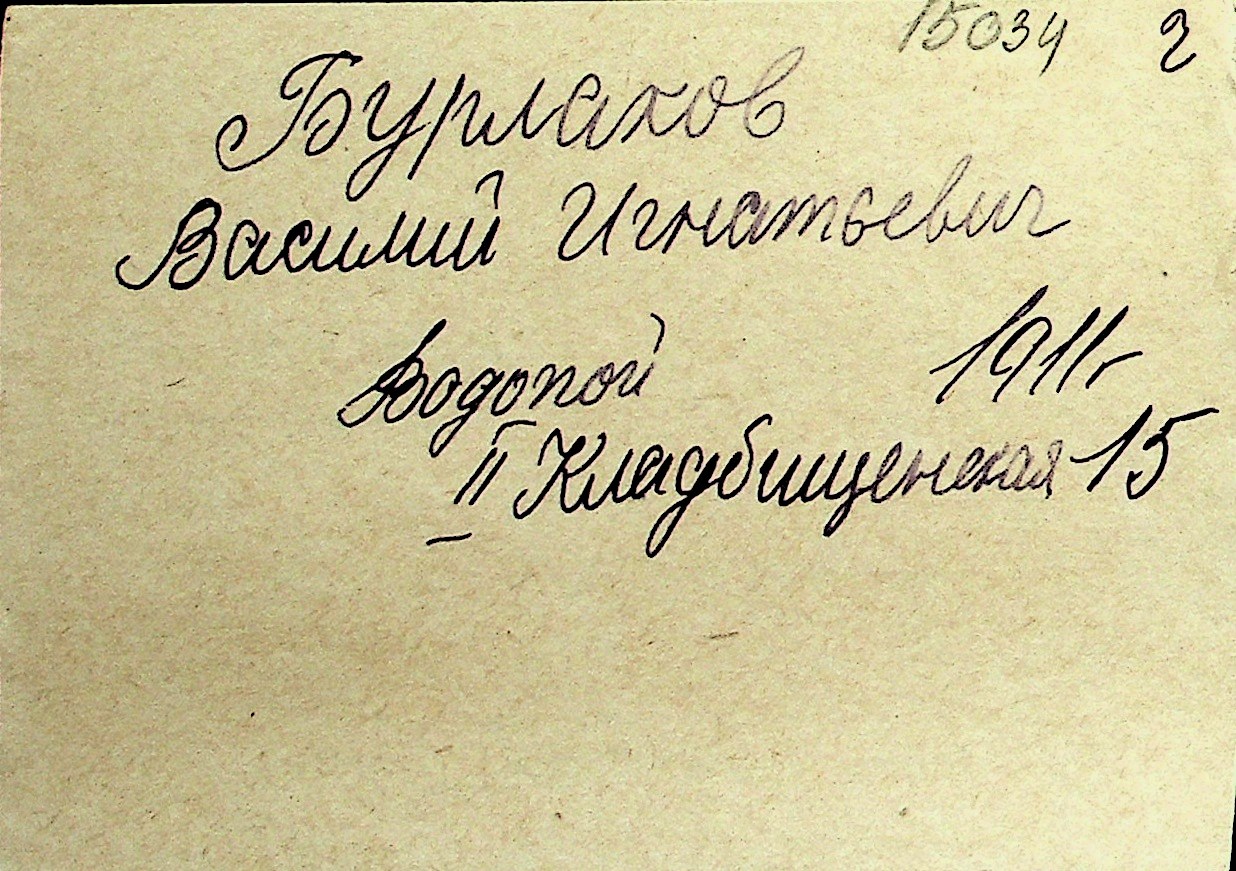 15034 2
Бурлахов
Василий Игнатьевич
Водопой 1911г
II Кладбищенская 15